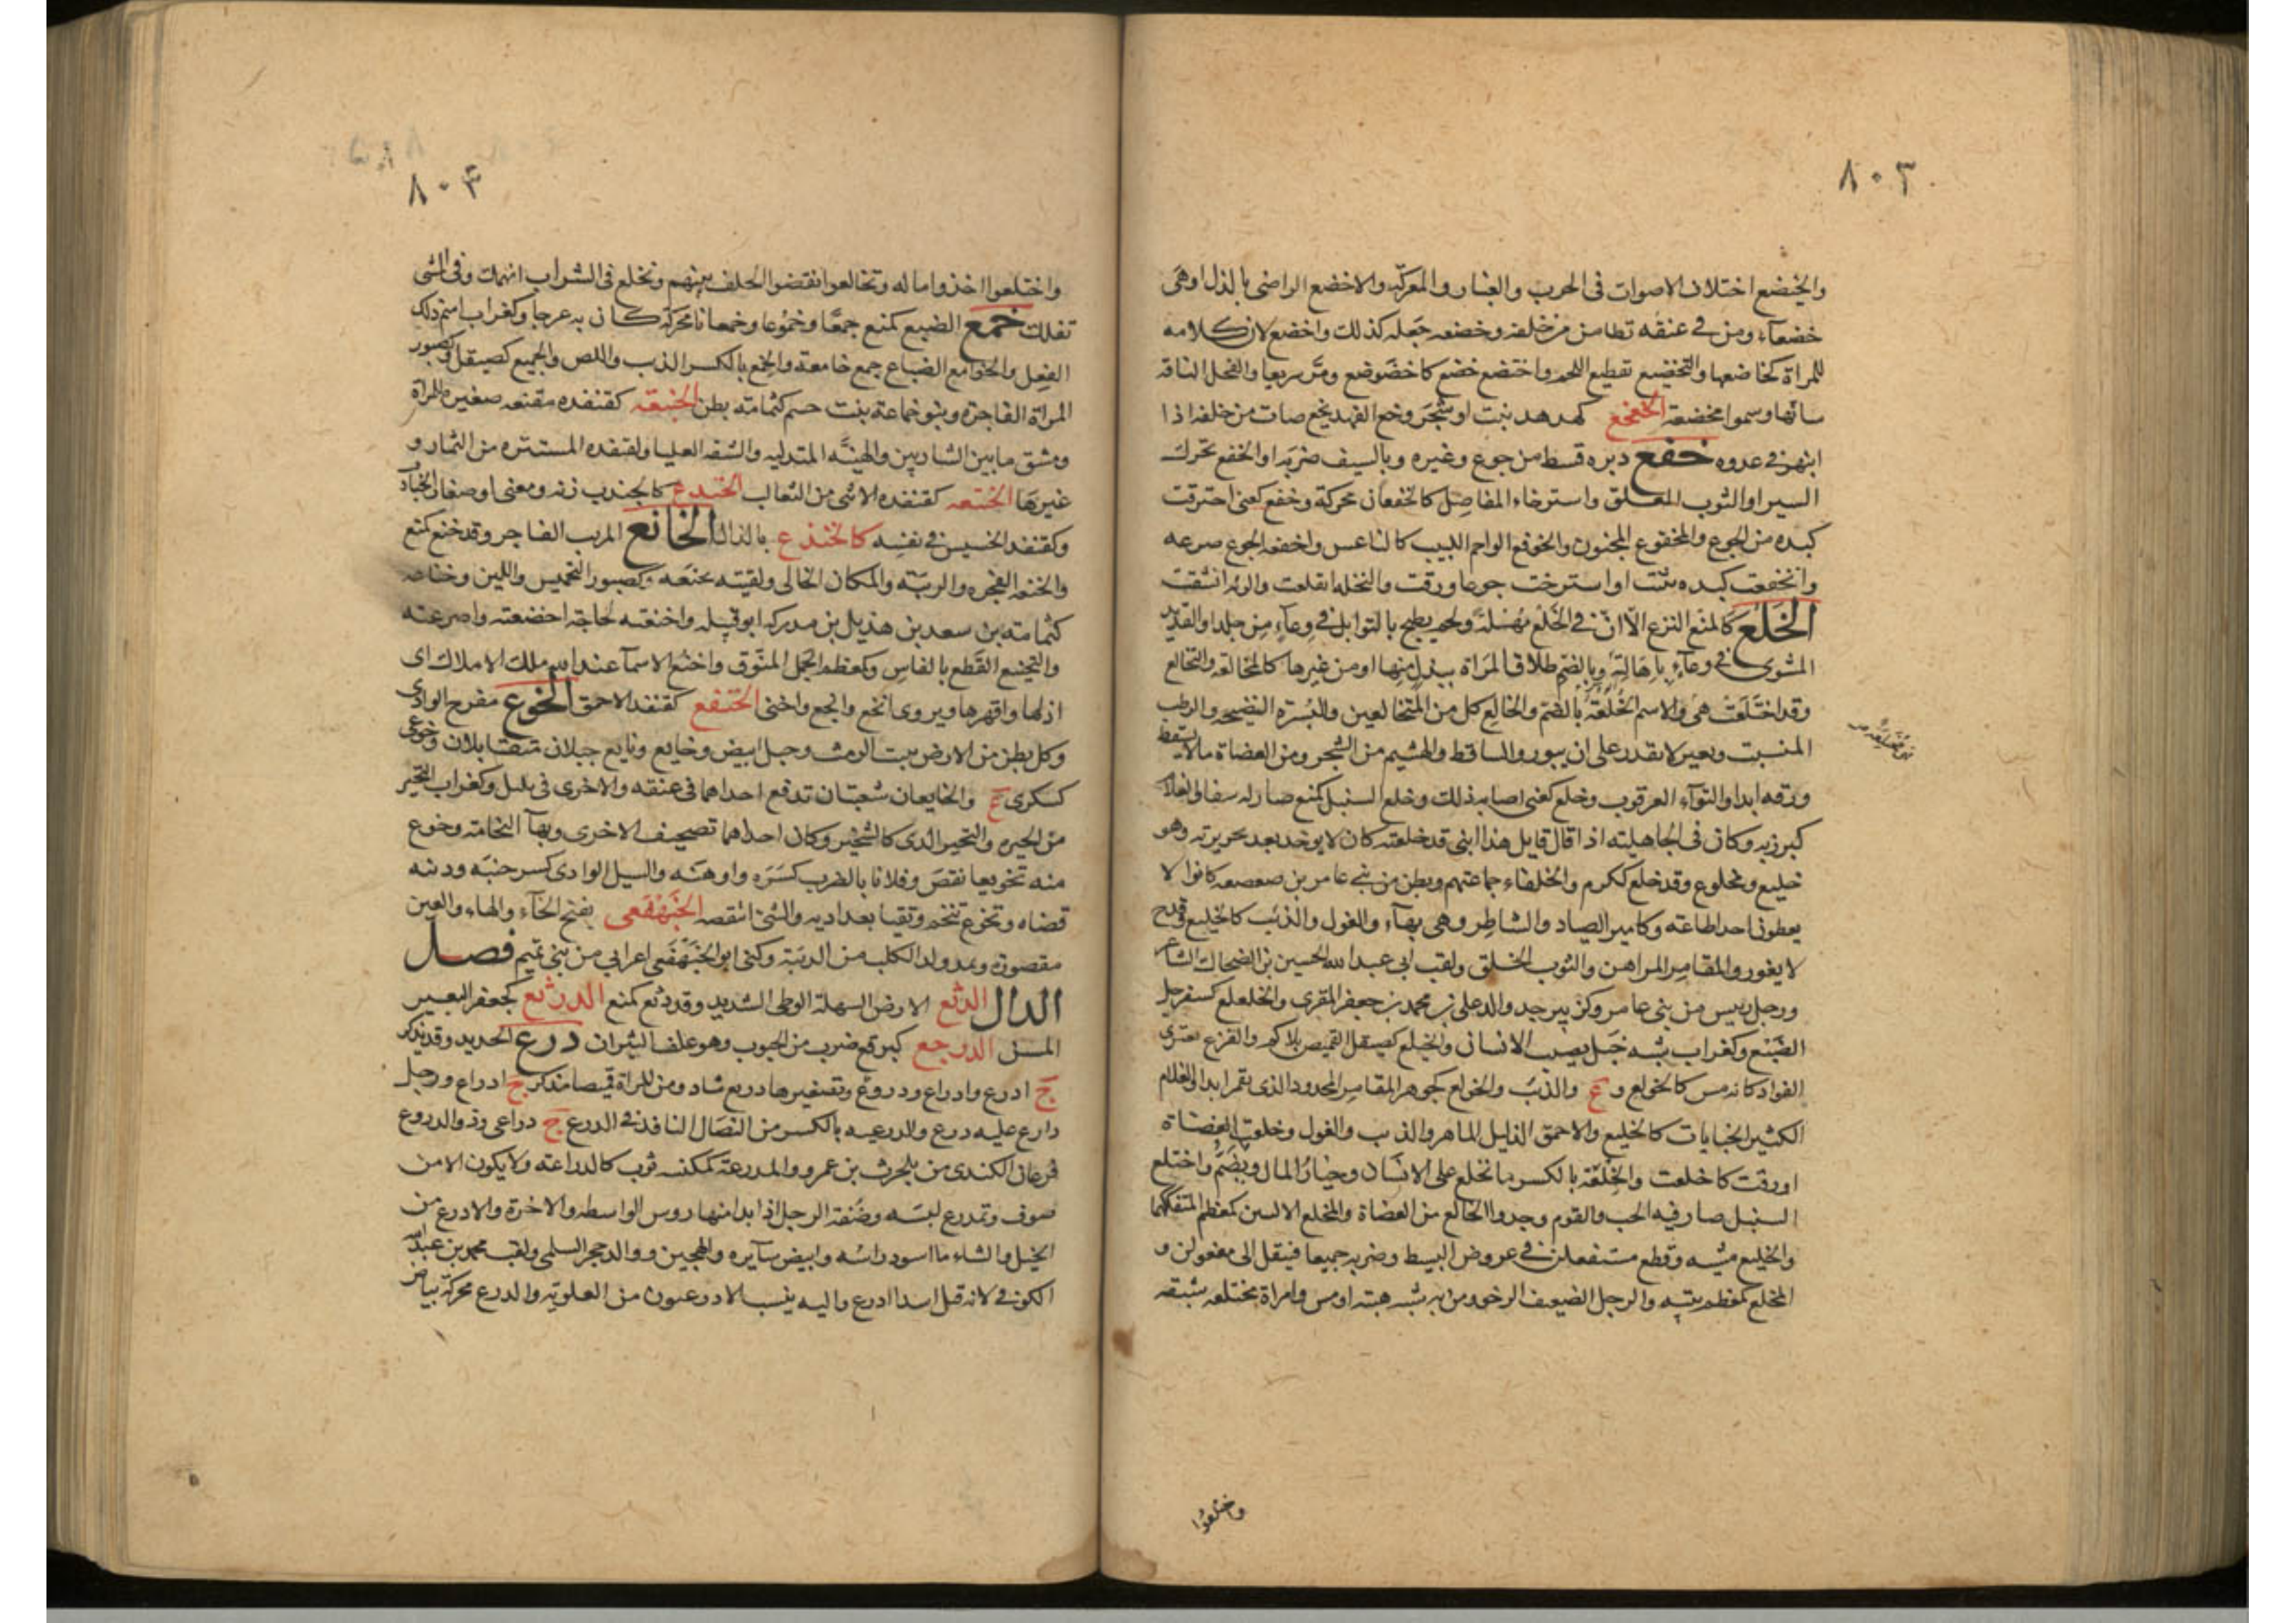 ٨٠٣
والخيضع اختلاف الاصوات فى الحرب والغبار والمعركة والاخضع الراضى بالذل وهى
خضعآء ومن فى عنقه تطامن من خلقه وخضعه جعله كذلك واخضع لان كلامه
للمراة كخاضعها والتخضيع تقطيع اللحم واختضع خضع كاخضوضع ومر سريعا والفحل الناقة
سانها وسموا مخضعة الخعخع كهدهد نبت او شجر وخع الفهد يخع صات من خلفه اذا
انبهر فى عدوه خفع دبره قسط من جوع وغيره وبالسيف ضربه او الخفع تحرك
السير او الثوب المعلق واسترخاء المفاصل كالخفعان محركة وخفع كعنى احترقت
كبده من الجوع والمخفوع المجنون والخوفع الواجم الليب كالناعس واخفعه الجوع صرعه
وانخفعت كبده او استرخت جوعا ورقت والنخلة انقلعت والرئة انشقت
الخلع كالمنع النزع الا ان فى الخلع مهلة ولحم يطبخ بالتوابل فى وعآء من جلد او القديد
المشوى فى وعآء باهالته وبالضم طلاق المراة ببذل منها او من غيرها كالمخالعة والتخالع
وقد اختلعت هى والاسم الخلعة بالضم والخالع كل من المتخالعين والبسرة النضيجة والرطب
المنسبت وبعير لا يقدر على ان يبور والساقط والهشيم من الشجر ومن العضاة ما لا يسقط
ورقه ابدا والتوآء العرقوب وخلع كعنى اصابه ذلك وخلع السنبل كمنع صار له سفا والغلام
كبر زبه وكان فى الجاهلية اذا قال قايل هذا ابنى قد خلعته كان لا يوخذ بعد بجريرته وهو
خليع ومخلوع وقد خلع ككرم والخلفاء جماعتهم وبطن من بنى عامر بن صعصعه كانوا لا
يعطون احدا طاعة وكامير الصياد والشاطر وهى بهآء والغول والذئب كالخيلع وقدح
لا يفوز والمقامر المراهن والثوب الخلق ولقب ابى عبد الله الحسين بن الضحاك الشاعر
ورجل رئيس من بنى عامر وكزبير جد والد على بن محمد بن جعفر المقرى والخلعلع كسفرجل
الضبع وكغراب شبه خبل يصيب الانسان والخيلع كصيقل القميص بلا كم والفزع يعترى
الفواد كانه مس كالخولع وع والذئب والخولع كجوهر المقامر المحدود الذى يقمر ابدا والغلام
الكثير الجنايات كالخليع والاحمق الدليل الماهر والذيب والغول وخلعت العضاة
اورقت كاخلعت والخلعة بالكسر ما تخلع على الانسان وخيار المال ويضم واختلع
السنبل صار فيه الحب والقوم وجدوا الخالع من العضاة والمخلع الاليتين كمعظم المتفككهما
والخليع مشيه وقطع مستفعلن فى عروض البسيط وضربه جميعا فينقل الى مفعولن و
المخلع كمعظم بيته والرجل الضعيف الرخو ومن به شبه هبته او مس وامراة مختلعة شبقة
واختلعوا
٨٠٤
واختلعوا اخذوا ماله وتخالعوا نقضوا الحلف بينهم وتخلع فى الشراب انهمك وفى المشى
تفكك خمع الضبع كمنع جمعا وخموعا وخمعانا محركة كان به عرجا وكغراب اسم ذلك
الفعل والخوامع الضباع جمع خامعة والخمع بالكسر الذيب واللص والخميع كصيقل وصبور
المراة الفاجرة وبنو خماعة بنت جشم كثمامة بطن الخنبعة كقنفده مقنعه صغيرة للمراة
ومشق ما بين الشاربين والهنة المتدليه والشفه العليا وكقنفده المستتره من الثمار و
غيرها الختعه كقنفده الانثى من الثعالب الخندع كالجندب زنه ومعنى او صغار الجنادب
وكقنفد الخسيس فى نفسه كالخنذع بالذال الخانع المريب الفاجر وقد خنع كمنع
والخنعه الفجره والريبة والمكان الخالى ولقيته بخنعه وكصبور التخميس واللين وخناعه
كثمامة بن سعد بن هذيل بن مدركه ابو قبيله واخنعته الحاجة اخضعته واضرعته
والتخنيع القطع بالفاس وكمعظم الجمل المنوق واخنع الاسمآ عند الله ملك الاملاك اى
اذلها واقهرها ويروى انخع وابخع واخنى الخنفع كقنفد الاحمق الخوع منعرج الوادى
وكل بطن من الارض ينبت الرمث وجبل ابيض وخايع ونايع جبلان متقابلان وخوعى
كسكرى ع والخايعان شعبتان تدفع احداهما فى عنقه والاخرى فى يليل وكغراب التحير
من الحيره والنخير الذى كالشخير وكان احداهما تصحيف الاخرى وبهآ النخامة وخوع
منه تخويعا نقص وفلانا بالضرب كسره واوهنه والسيل الوادى كسر جنبيه ودينه
قضاه وتخوع تنخم وتقيا بعداديه والشئ انتقصه الخنهفعى بفتح الخآء والهاء والعين
مقصورة ويمد ولد الكلب من الذئبة وكنى ابو الخنهفعى اعرابى من بنى تميم فصل
الدال الدثع الارض السهلة الوطى الشديد وقد دثع كمنع الدرثع كجعفر البعير
المسن الدرجع كبرقع ضرب من الحبوب وهو علف الثيران درع الحديد وقد يذكر
ج ادرع وادراع ودروع وتصغيرها دريع شاذ ومن المراة قميصها مذكر ج ادراع ورجل
دارع عليه درع والدرعيه بالكسر من النصال النافذ فى الدرع ج دراعى وذو الدروع
فرعان الكندى من بلحرث بن عمرو والمدرعة كمكنسه ثوب كالدراعة ولا يكون الا من
صوف وتدرع لبسه وصفة الرحل اذا بدا منها روس الواسطه والاخرة والادرع من
الخيل والشاء ما اسود راسه وابيض سآيره والهجين ووالد حجر السلمى ولقب محمد بن عبد الله
الكوفى لانه قتل اسدا ادرع واليه ينسب الادرعيون من العلوية والدرع محركة بياض